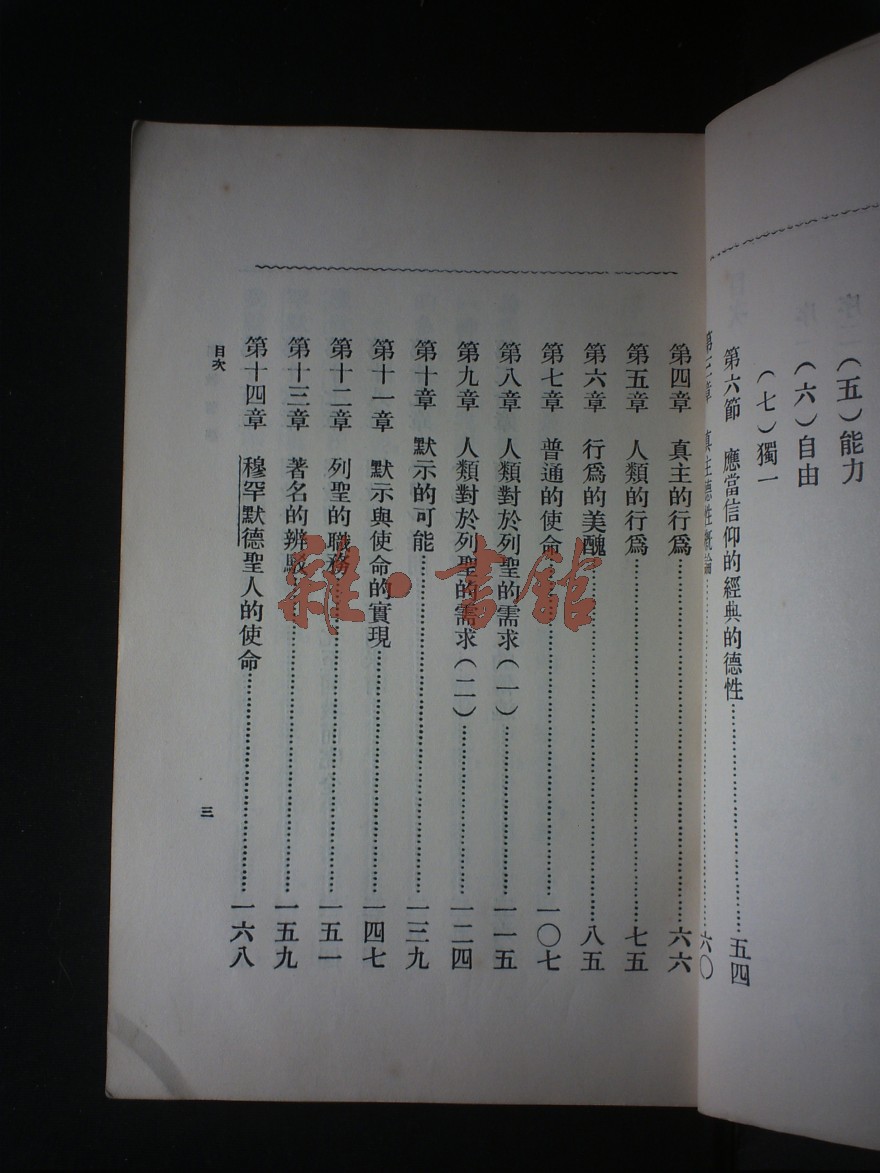 （五）能力
（六）自由
（七）獨一
第六節　應當信仰的經典的德性……五四
第三章　真主德性概論……六〇
第四章　真主的行爲……六六
第五章　人類的行爲……七五
第六章　行爲的美醜……八五
第七章　普通的使命……一〇七
第八章　人類對於列聖的需求（一）……一一五
第九章　人類對於列聖的需求（二）……一二四
第十章　默示的可能……一三九
第十一章　默示與使命的實現……一四七
第十二章　列聖的職務……一五一
第十三章　著名的辨駁……一五九
第十四章　穆罕默德聖人的使命……一六八
目次
三
雜·書館